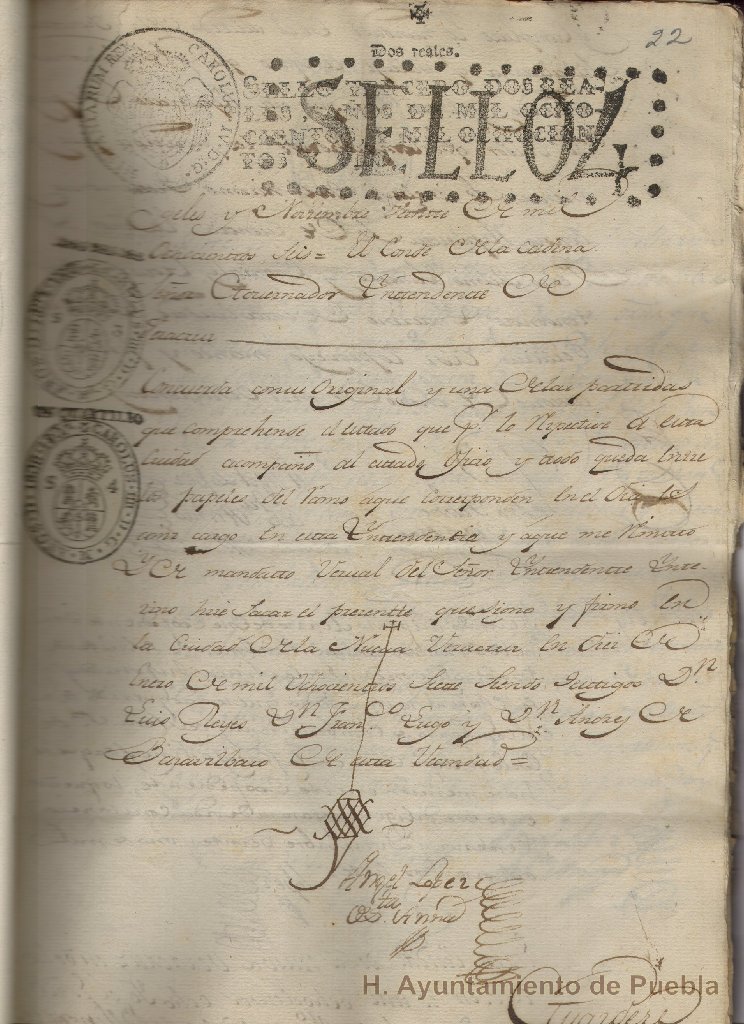 22
Dos reales.
SELLO TERCERO DOS REA-
LES, AÑOS DE MIL OCHO-
CIENTOS Y MIL OCHOCIEN-
TOS Y
SELLO 4
CAROLUS IV D G
geles y Noviembre de mil
Ochocientos seis = El Conde de la Cadena
Señor Governador Yntendente de
Veracruz
Concuerda con su Original y una de las partidas
que comprehende el estado que pr. lo respectivo a esta
Ciudad acompaño al citado Oficio y todo queda entre
los papeles del ramo a que corresponden en el dia
cargo en esta Yntendencia y a que me remito
Y de mandato Verval del Señor Yntendente Ynte-
rino hice sacar el presente que signo y firmo en
la Ciudad de la Nueva Veracruz en de
Enero de mil Ochocientos Siete siendo testigos Dn.
Luis Reyes Dn. Franco. Lugo y Dn. Andres de
de esta Vecindad =
Angel Lopez
de Sta. Anna
H. Ayuntamiento de Puebla